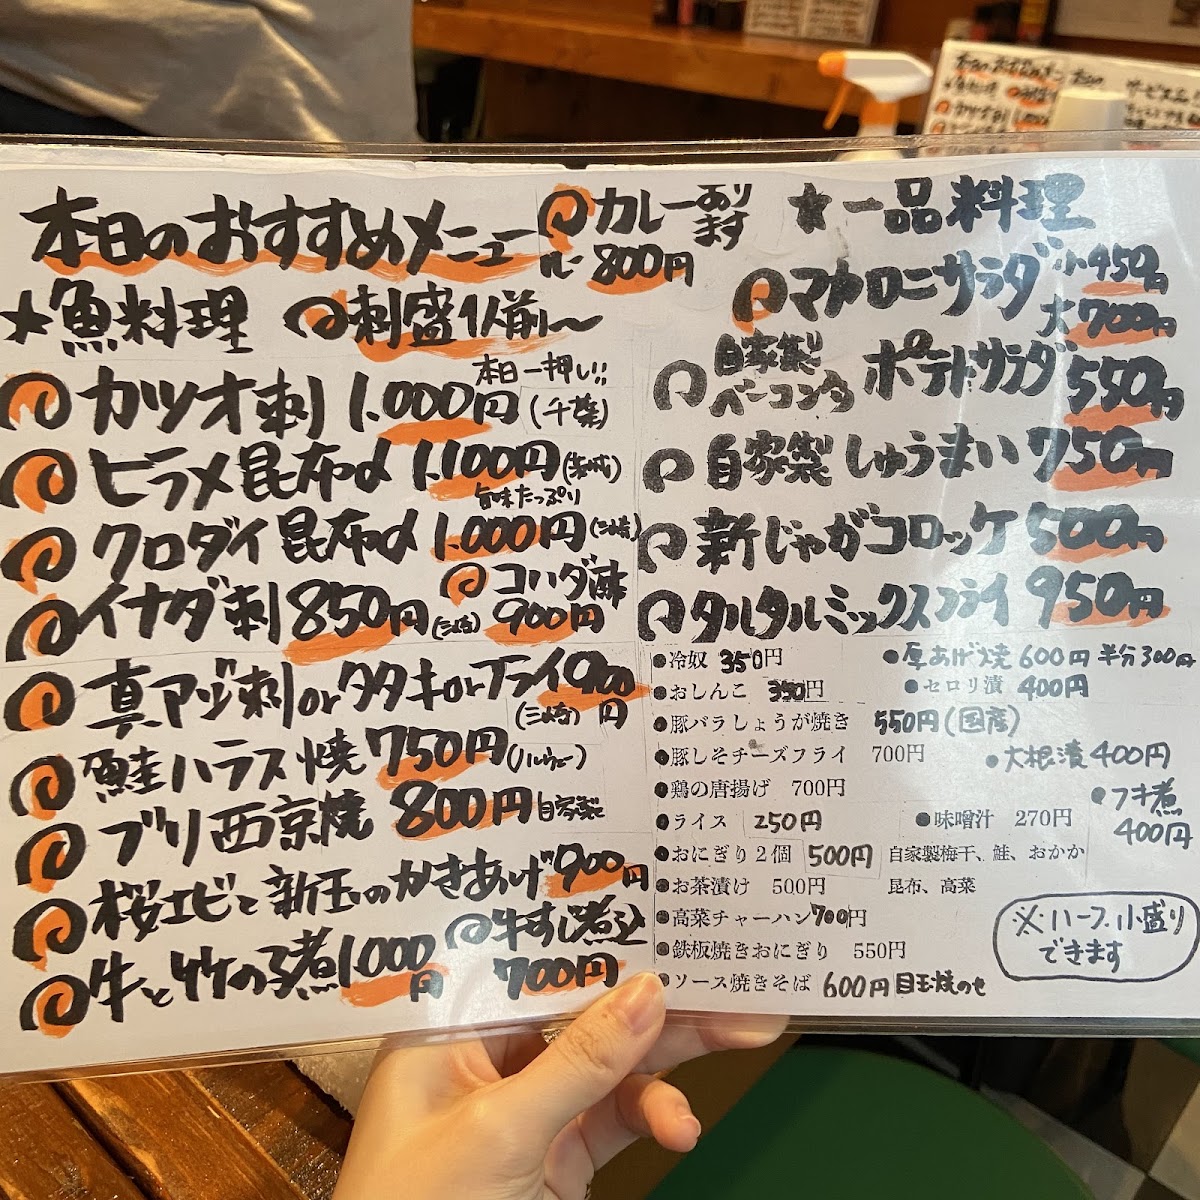 本日のおすすめメニュー
カレーあります
ルー 800円
★魚料理
刺盛1人前〜
本日一押し!!
カツオ刺 1.000円(千葉)
ヒラメ昆布〆 1.100円(茨城)
旨味たっぷり
クロダイ昆布〆 1.000円(三崎)
イナダ刺 850円(三崎)
コハダ酢 900円
真アジ刺orタタキorフライ 900円
(三崎)
鮭ハラス焼 750円(ノルウェー)
ブリ西京焼 800円 自家製
桜エビと新玉のかきあげ 900円
牛と竹の子煮 1.000円
牛すじ煮込 700円
★一品料理
マカロニサラダ 小450円
大700円
自家製ベーコン入り ポテトサラダ 550円
自家製しゅうまい 750円
新じゃがコロッケ 500円
タルタルミックスフライ 950円
●冷奴 350円
●厚あげ焼 600円 半分300円
●おしんこ 350円
●セロリ漬 400円
●豚バラしょうが焼き 550円(国産)
●豚しそチーズフライ 700円
●大根漬 400円
●鶏の唐揚げ 700円
●フキ煮 400円
●ライス 250円
●味噌汁 270円
●おにぎり2個 500円 自家製梅干、鮭、おかか
昆布、高菜
●お茶漬け 500円
●高菜チャーハン 700円
●鉄板焼きおにぎり 550円
●ソース焼きそば 600円 目玉焼のせ
※ハーフ、小盛り
できます